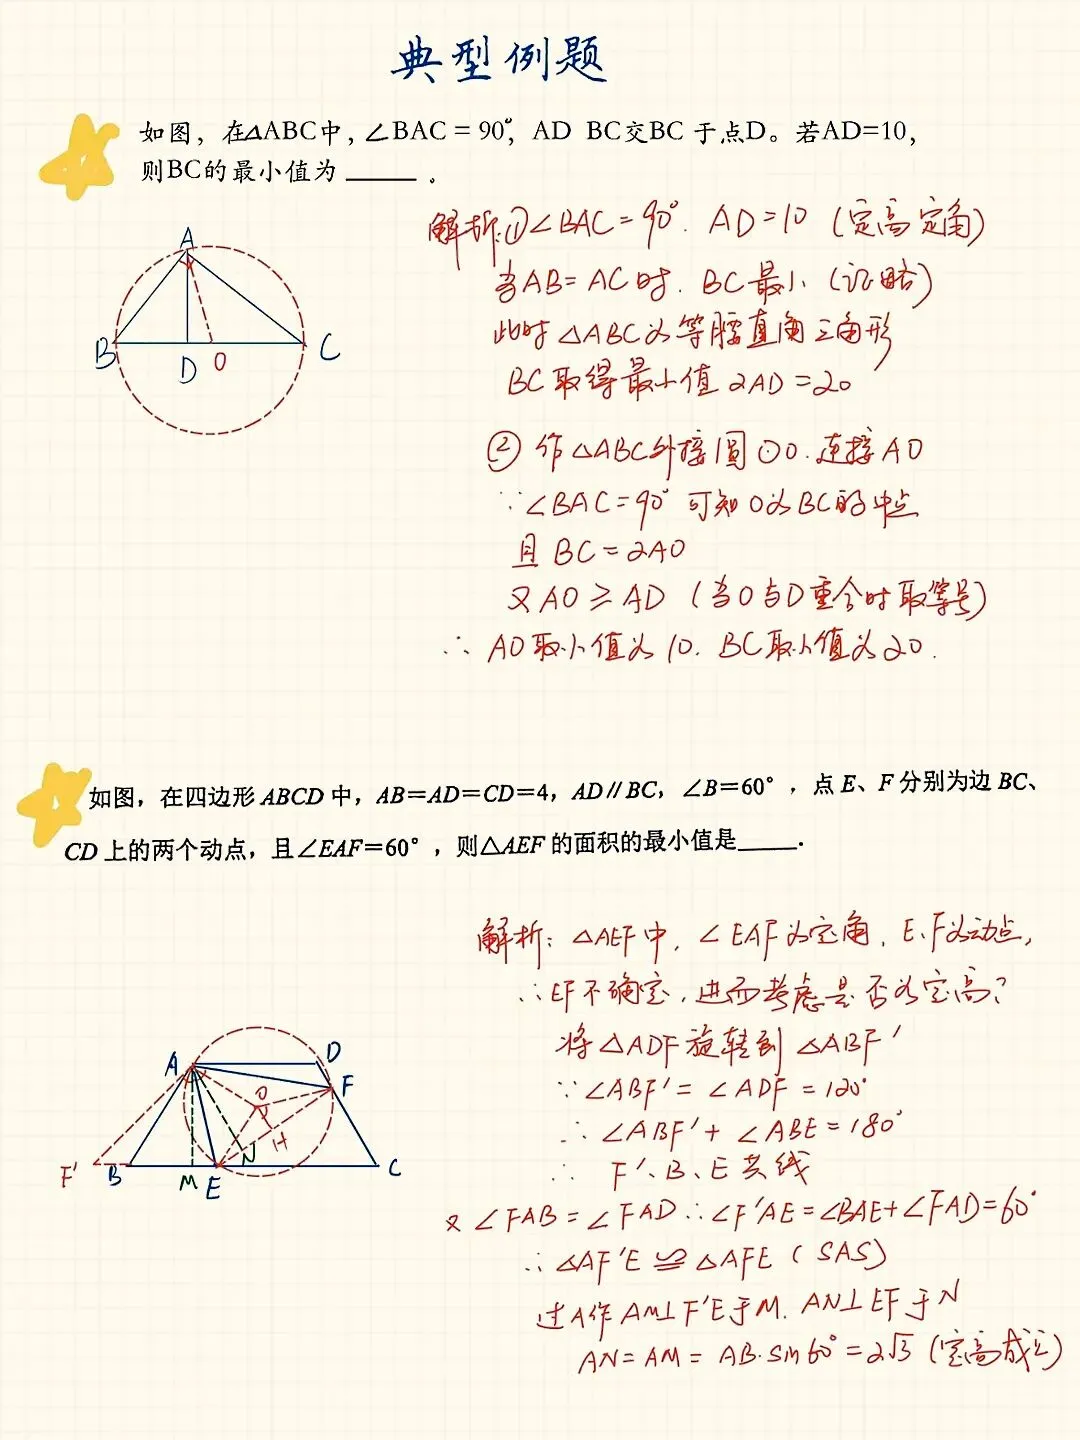 典型例题
如图，在△ABC中，∠BAC = 90°，AD BC交BC 于点D。若AD=10，
则BC的最小值为 ______ 。
A
B
D
O
C
解析:①∠BAC = 90°. AD = 10 (定高定角)
当AB = AC时. BC最小 (证略)
此时△ABC为等腰直角三角形
BC取得最小值 2AD = 20
② 作△ABC外接圆⊙O.连接AO
∵∠BAC = 90° 可知O为BC的中点
且 BC = 2AO
又 AO ≥ AD (当O与D重合时取等号)
∴ AO取小值为10. BC取小值为20.
如图，在四边形 ABCD 中，AB=AD=CD=4，AD∥BC，∠B=60°，点 E、F 分别为边 BC、
CD 上的两个动点，且∠EAF=60°，则△AEF 的面积的最小值是_____.
解析: △AEF中, ∠EAF为定角, E、F为动点,
∴EF不确定, 进而考虑是否为定高?
将△ADF旋转到△ABF'
∵∠ABF' = ∠ADF = 120°
∴∠ABF' + ∠ABE = 180°
∴ F'、B、E共线
又∠FAB = ∠FAD ∴∠F'AE = ∠BAE + ∠FAD = 60°
∴ △AF'E ≌ △AFE (SAS)
过A作AM⊥F'E于M. AN⊥EF于N
AN = AM = AB·sin60° = 2√3 (定高成立)
A
D
F
O
H
N
F'
B
M
E
C